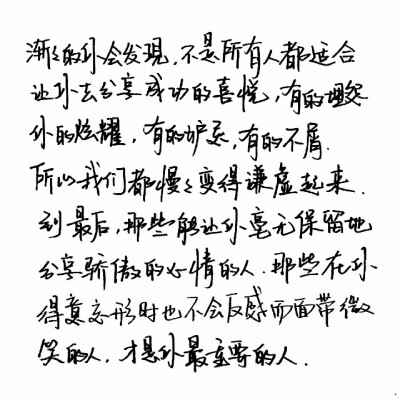 渐渐的你会发现,不是所有人都适合
让你去分享成功的喜悦,有的埋怨
你的炫耀,有的妒忌,有的不屑.
所以我们都慢慢变得谦虚起来.
到最后,那些能让你毫无保留地
分享骄傲的心情的人.那些在你
得意忘形时也不会反感而面带微
笑的人,才是你最重要的人.